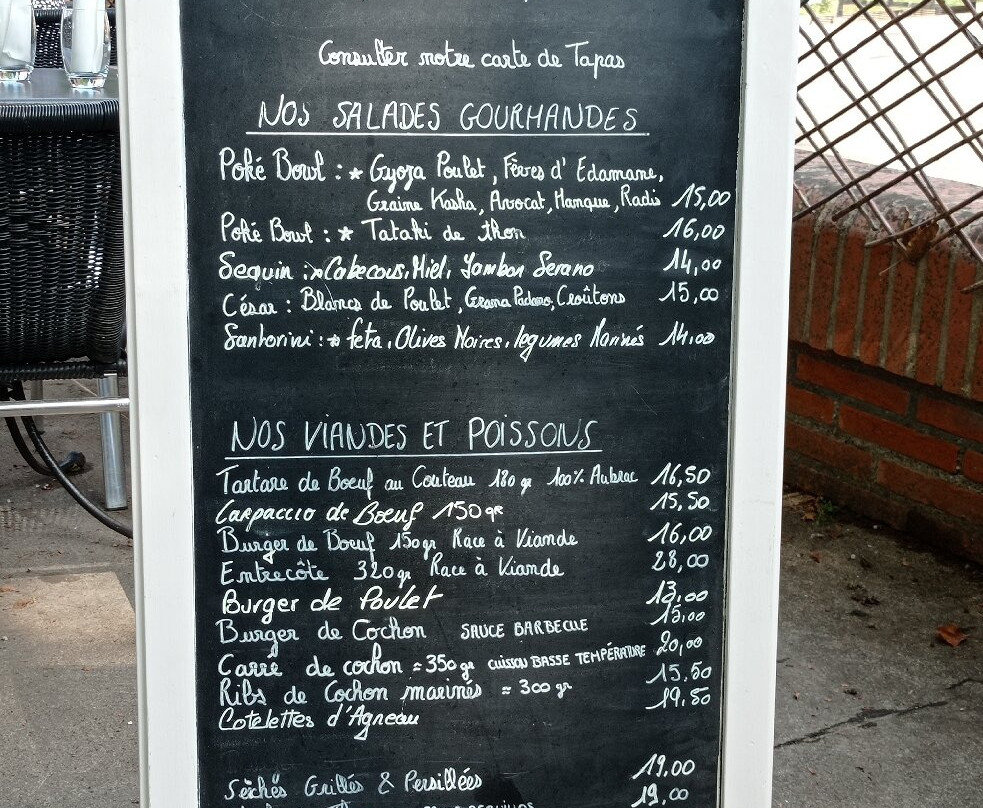 Consulter notre carte de Tapas
NOS SALADES GOURMANDES
Poké Bowl : * Gyoza Poulet, Fèves d'Edamane,
Graine Kasha, Avocat, Mangue, Radis 15,00
Poké Bowl : * Tataki de thon 16,00
Seguin : * Cabecous, Miel, Jambon Serano 14,00
César : Blancs de Poulet, Grana Padano, Croûtons 15,00
Santorini : * feta, Olives Noires, légumes Marinés 14,00
NOS VIANDES ET POISSONS
Tartare de Boeuf au Couteau 180 gr 100% Aubrac 16,50
Carpaccio de Boeuf 150 gr 15,50
Burger de Boeuf 150 gr Race à Viande 16,00
Entrecôte 320 gr Race à Viande 28,00
Burger de Poulet 13,00
Burger de Cochon SAUCE BARBECUE 15,00
Carré de cochon ≈ 350 gr CUISSON BASSE TEMPÉRATURE 20,00
Ribs de Cochon marinés ≈ 300 gr 15,50
Cotelettes d'Agneau 19,50
Sèches Grillés & Persillées 19,00
19,00